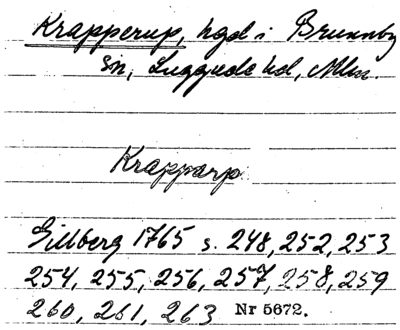 Krapperup, hgd i Brunnby
sn, Luggude hd, Mlm.
Krapparp
Gillberg 1765 s. 248, 252, 253
254, 255, 256, 257, 258, 259
260, 261, 263 Nr 5672.